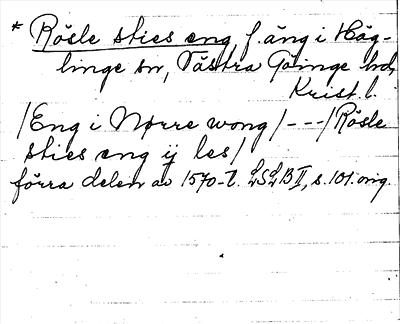 * Rösle sties eng, f. äng i Hög-
linge sn, Västra Göinge hd,
Krist. l.
/Eng i Nørre wong/---/Rösle
sties eng ij les/
förra delen av 1570-t. LSLB II, s. 101. orig.